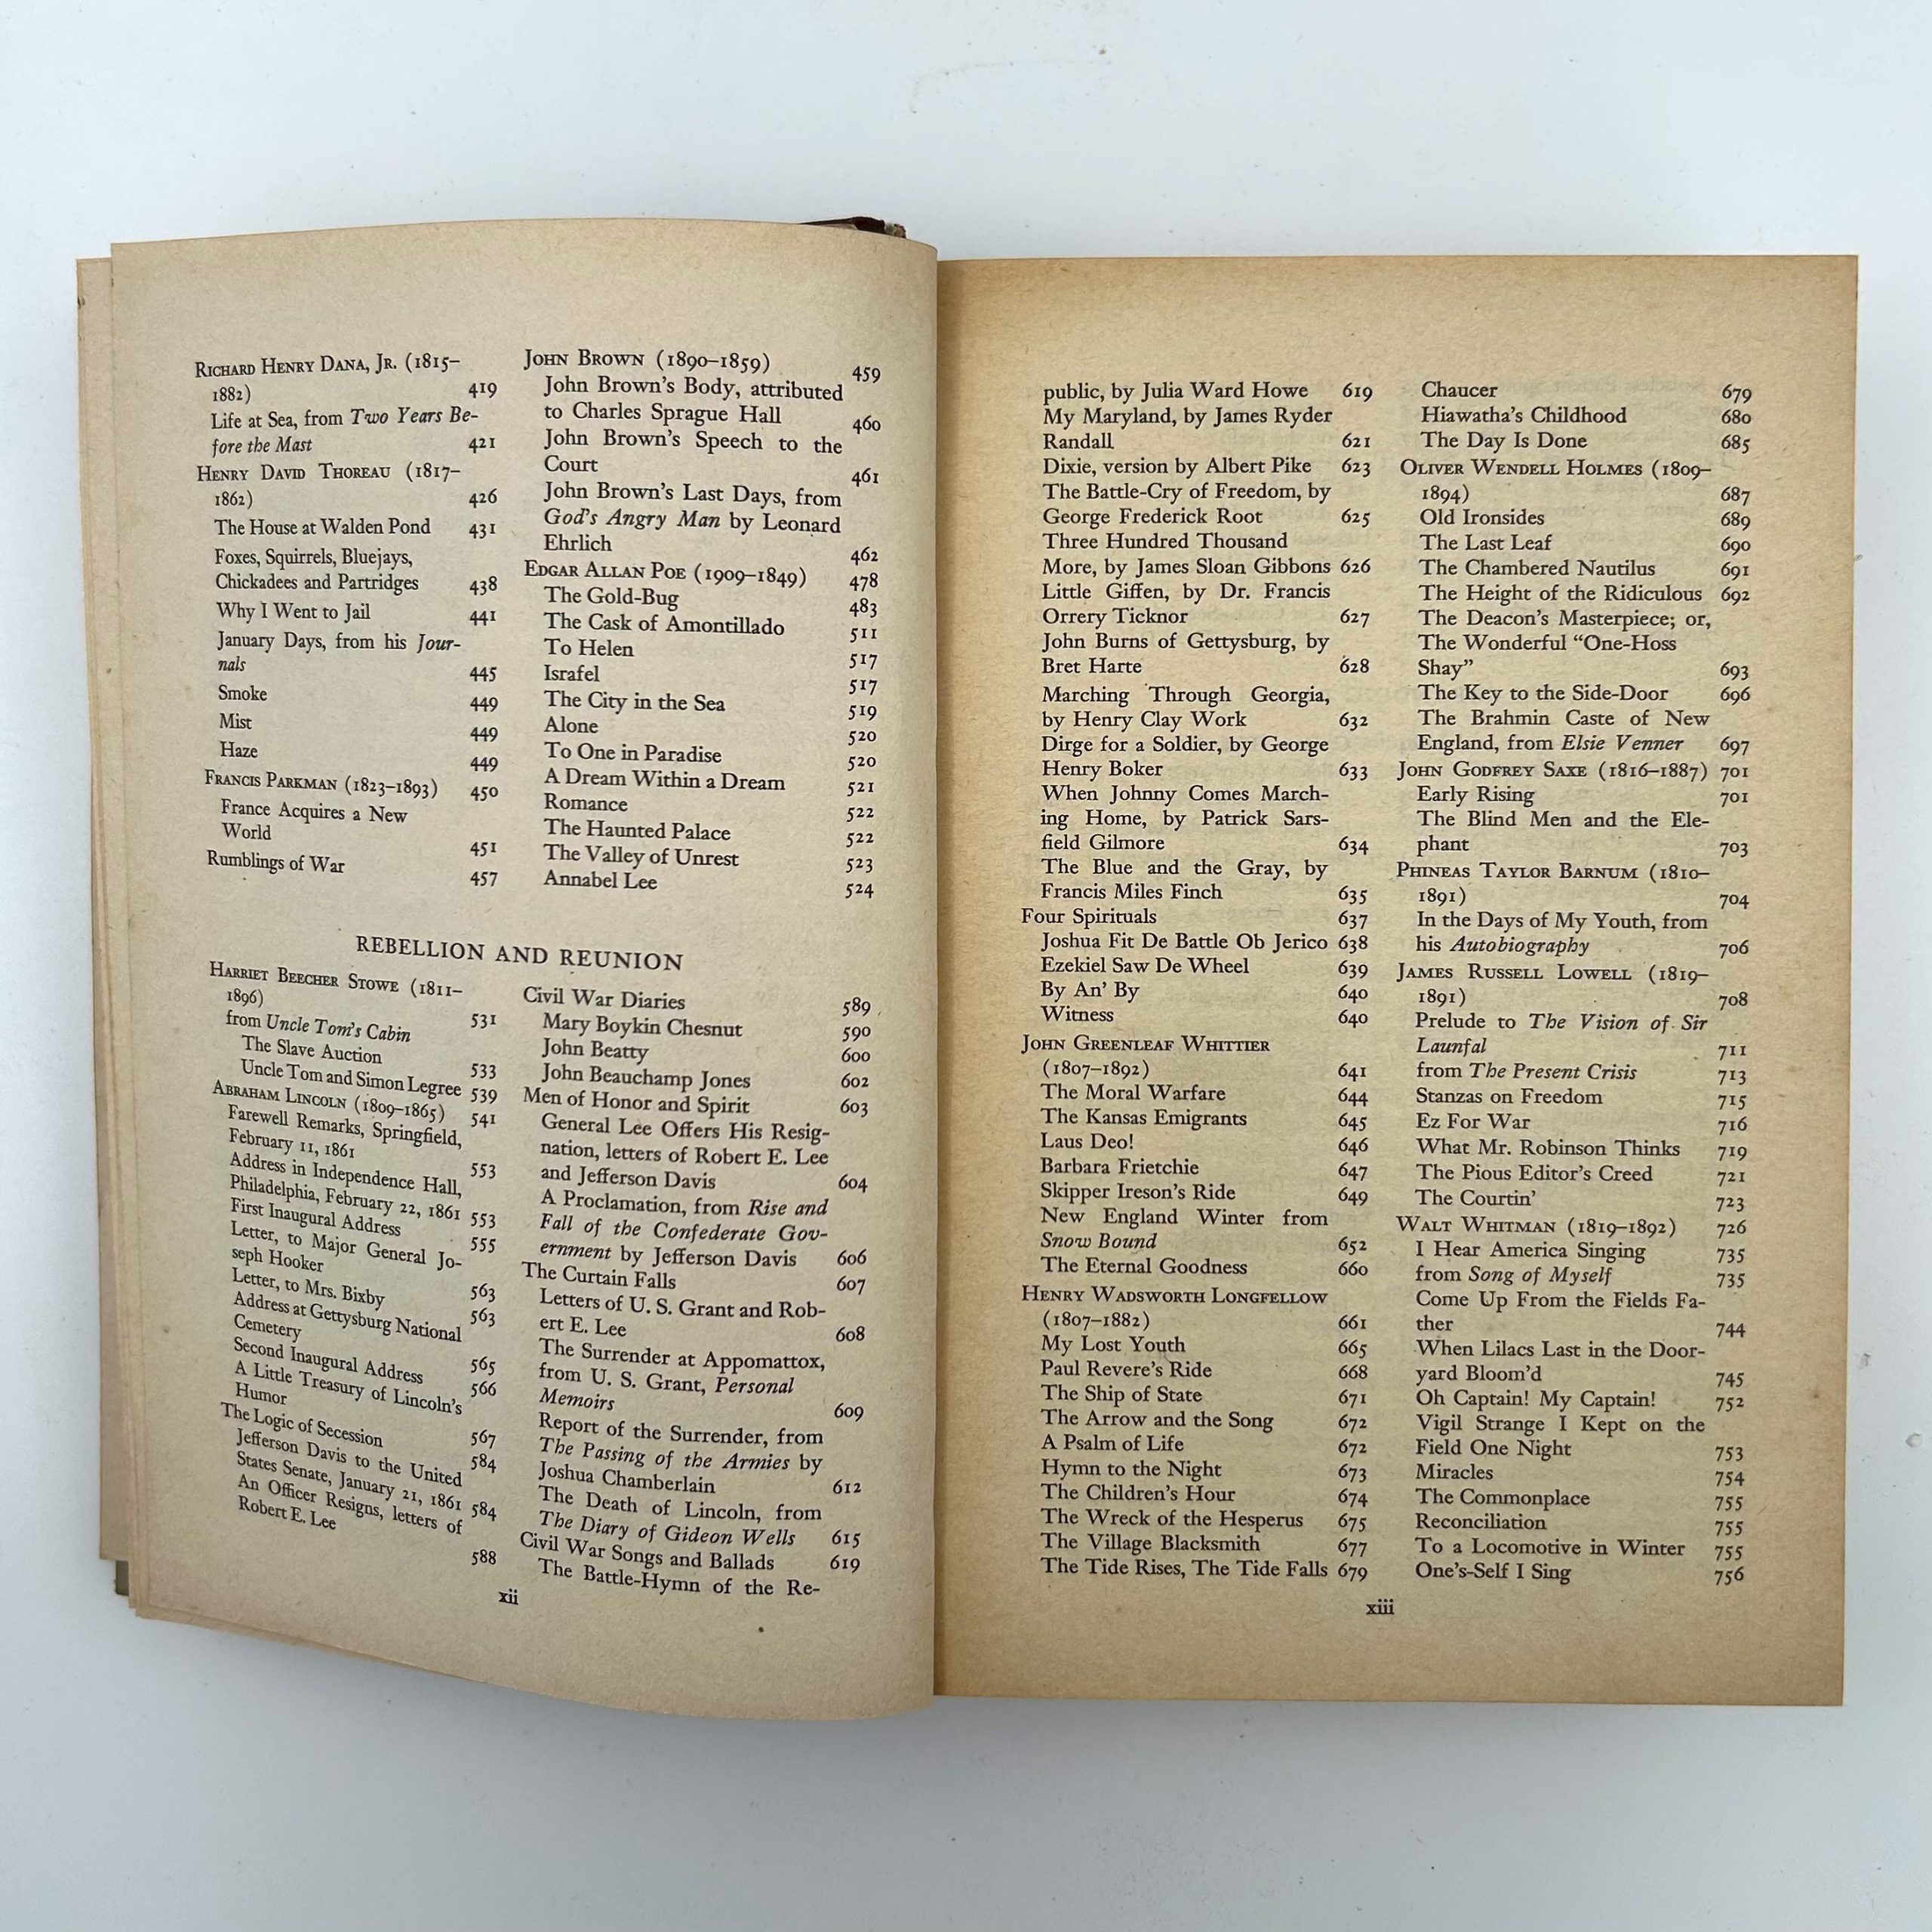 RICHARD HENRY DANA, JR. (1815–
1882) 419
Life at Sea, from Two Years Be-
fore the Mast 421
HENRY DAVID THOREAU (1817–
1862) 426
The House at Walden Pond 431
Foxes, Squirrels, Bluejays,
Chickadees and Partridges 438
Why I Went to Jail 441
January Days, from his Jour-
nals 445
Smoke 449
Mist 449
Haze 449
FRANCIS PARKMAN (1823–1893) 450
France Acquires a New
World 451
Rumblings of War 457
JOHN BROWN (1890–1859) 459
John Brown's Body, attributed
to Charles Sprague Hall 460
John Brown's Speech to the
Court 461
John Brown's Last Days, from
God's Angry Man by Leonard
Ehrlich 462
EDGAR ALLAN POE (1909–1849) 478
The Gold-Bug 483
The Cask of Amontillado 511
To Helen 517
Israfel 517
The City in the Sea 519
Alone 520
To One in Paradise 520
A Dream Within a Dream 521
Romance 522
The Haunted Palace 522
The Valley of Unrest 523
Annabel Lee 524
REBELLION AND REUNION
HARRIET BEECHER STOWE (1811–
1896) 531
from Uncle Tom's Cabin
The Slave Auction 533
Uncle Tom and Simon Legree 539
ABRAHAM LINCOLN (1809–1865) 541
Farewell Remarks, Springfield,
February 11, 1861 553
Address in Independence Hall,
Philadelphia, February 22, 1861 553
First Inaugural Address 555
Letter, to Major General Jo-
seph Hooker 563
Letter, to Mrs. Bixby 563
Address at Gettysburg National
Cemetery 565
Second Inaugural Address 566
A Little Treasury of Lincoln's
Humor 567
The Logic of Secession 584
Jefferson Davis to the United
States Senate, January 21, 1861 584
An Officer Resigns, letters of
Robert E. Lee 588
Civil War Diaries 589
Mary Boykin Chesnut 590
John Beatty 600
John Beauchamp Jones 602
Men of Honor and Spirit 603
General Lee Offers His Resig-
nation, letters of Robert E. Lee
and Jefferson Davis 604
A Proclamation, from Rise and
Fall of the Confederate Gov-
ernment by Jefferson Davis 606
The Curtain Falls 607
Letters of U. S. Grant and Rob-
ert E. Lee 608
The Surrender at Appomattox,
from U. S. Grant, Personal
Memoirs 609
Report of the Surrender, from
The Passing of the Armies by
Joshua Chamberlain 612
The Death of Lincoln, from
The Diary of Gideon Wells 615
Civil War Songs and Ballads 619
The Battle-Hymn of the Re-
xii
public, by Julia Ward Howe 619
My Maryland, by James Ryder
Randall 621
Dixie, version by Albert Pike 623
The Battle-Cry of Freedom, by
George Frederick Root 625
Three Hundred Thousand
More, by James Sloan Gibbons 626
Little Giffen, by Dr. Francis
Orrery Ticknor 627
John Burns of Gettysburg, by
Bret Harte 628
Marching Through Georgia,
by Henry Clay Work 632
Dirge for a Soldier, by George
Henry Boker 633
When Johnny Comes March-
ing Home, by Patrick Sars-
field Gilmore 634
The Blue and the Gray, by
Francis Miles Finch 635
Four Spirituals 637
Joshua Fit De Battle Ob Jerico 638
Ezekiel Saw De Wheel 639
By An' By 640
Witness 640
JOHN GREENLEAF WHITTIER
(1807–1892) 641
The Moral Warfare 644
The Kansas Emigrants 645
Laus Deo! 646
Barbara Frietchie 647
Skipper Ireson's Ride 649
New England Winter from
Snow Bound 652
The Eternal Goodness 660
HENRY WADSWORTH LONGFELLOW
(1807–1882) 661
My Lost Youth 665
Paul Revere's Ride 668
The Ship of State 671
The Arrow and the Song 672
A Psalm of Life 672
Hymn to the Night 673
The Children's Hour 674
The Wreck of the Hesperus 675
The Village Blacksmith 677
The Tide Rises, The Tide Falls 679
Chaucer 679
Hiawatha's Childhood 680
The Day Is Done 685
OLIVER WENDELL HOLMES (1809–
1894) 687
Old Ironsides 689
The Last Leaf 690
The Chambered Nautilus 691
The Height of the Ridiculous 692
The Deacon's Masterpiece; or,
The Wonderful "One-Hoss
Shay" 693
The Key to the Side-Door 696
The Brahmin Caste of New
England, from Elsie Venner 697
JOHN GODFREY SAXE (1816–1887) 701
Early Rising 701
The Blind Men and the Ele-
phant 703
PHINEAS TAYLOR BARNUM (1810–
1891) 704
In the Days of My Youth, from
his Autobiography 706
JAMES RUSSELL LOWELL (1819–
1891) 708
Prelude to The Vision of Sir
Launfal 711
from The Present Crisis 713
Stanzas on Freedom 715
Ez For War 716
What Mr. Robinson Thinks 719
The Pious Editor's Creed 721
The Courtin' 723
WALT WHITMAN (1819–1892) 726
I Hear America Singing 735
from Song of Myself 735
Come Up From the Fields Fa-
ther 744
When Lilacs Last in the Door-
yard Bloom'd 745
Oh Captain! My Captain! 752
Vigil Strange I Kept on the
Field One Night 753
Miracles 754
The Commonplace 755
Reconciliation 755
To a Locomotive in Winter 755
One's-Self I Sing 756
xiii